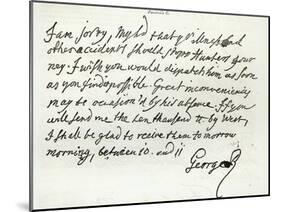 I am sorry, my Ld that ye illness and
other accidents should stop Hunters Jour
ney. I wish you would dispatch him as soon
as you find possible. Great inconveniency
may be occasion'd by his absence. If you
will send me the ten thousand ld by West,
I shall be glad to receive them to morrow
morning, between 10. and 11
George R